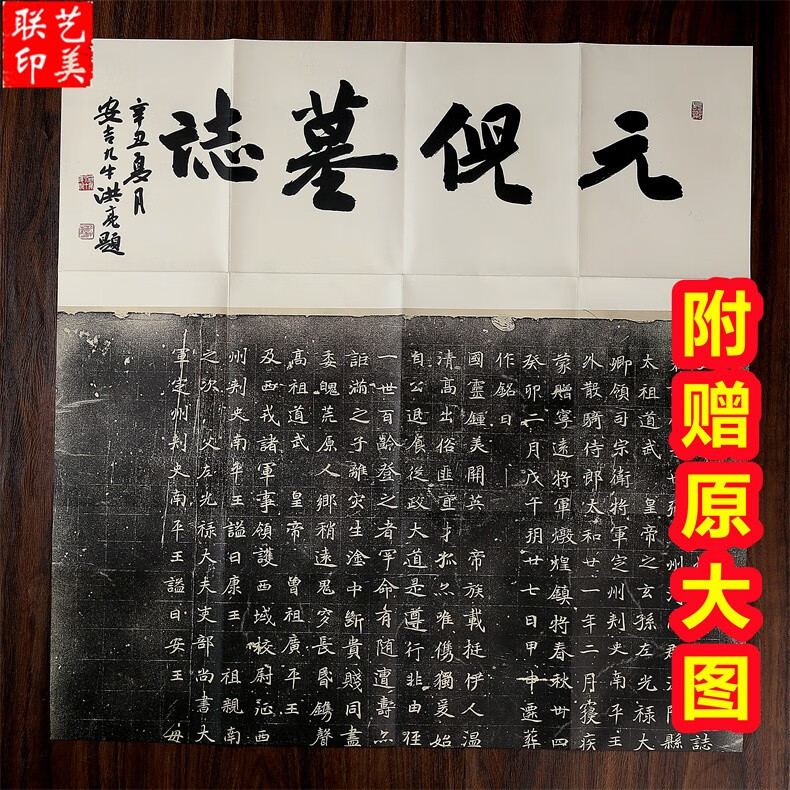 艺美
联印
元倪墓誌
辛丑夏月
安吉九牛洪亮題
誌
太祖道武 皇帝之玄孫左光祿大
卿領司宗衛將軍定州刾史南平王
外散騎侍郎太和廿一年二月寢疾
蒙贈寧遠將軍燉煌鎮將春秋卌四
癸卯二月戊午玥廿七日甲申遷葬
作銘曰
國靈鍾美開英 帝族載挺伊人温
清高出俗匪童才孤点唯儁獨爰始
自公退食從政大道是遵行非由徑
一世百齡登之者罕命有随遭壽点
詎滿之子離灾生塗中斷貴賤同盡
委魄荒原人鄉稍遠鬼穸長昏鐫聲
高祖道武 皇帝 曾祖廣平王
及西戎諸軍事領護西域校尉 西
州刾史南平王謚曰康王 祖親南
之次 父左光祿大夫吏部尚書大
軍定州刾史南平王謚曰安王 毋
附赠原大图